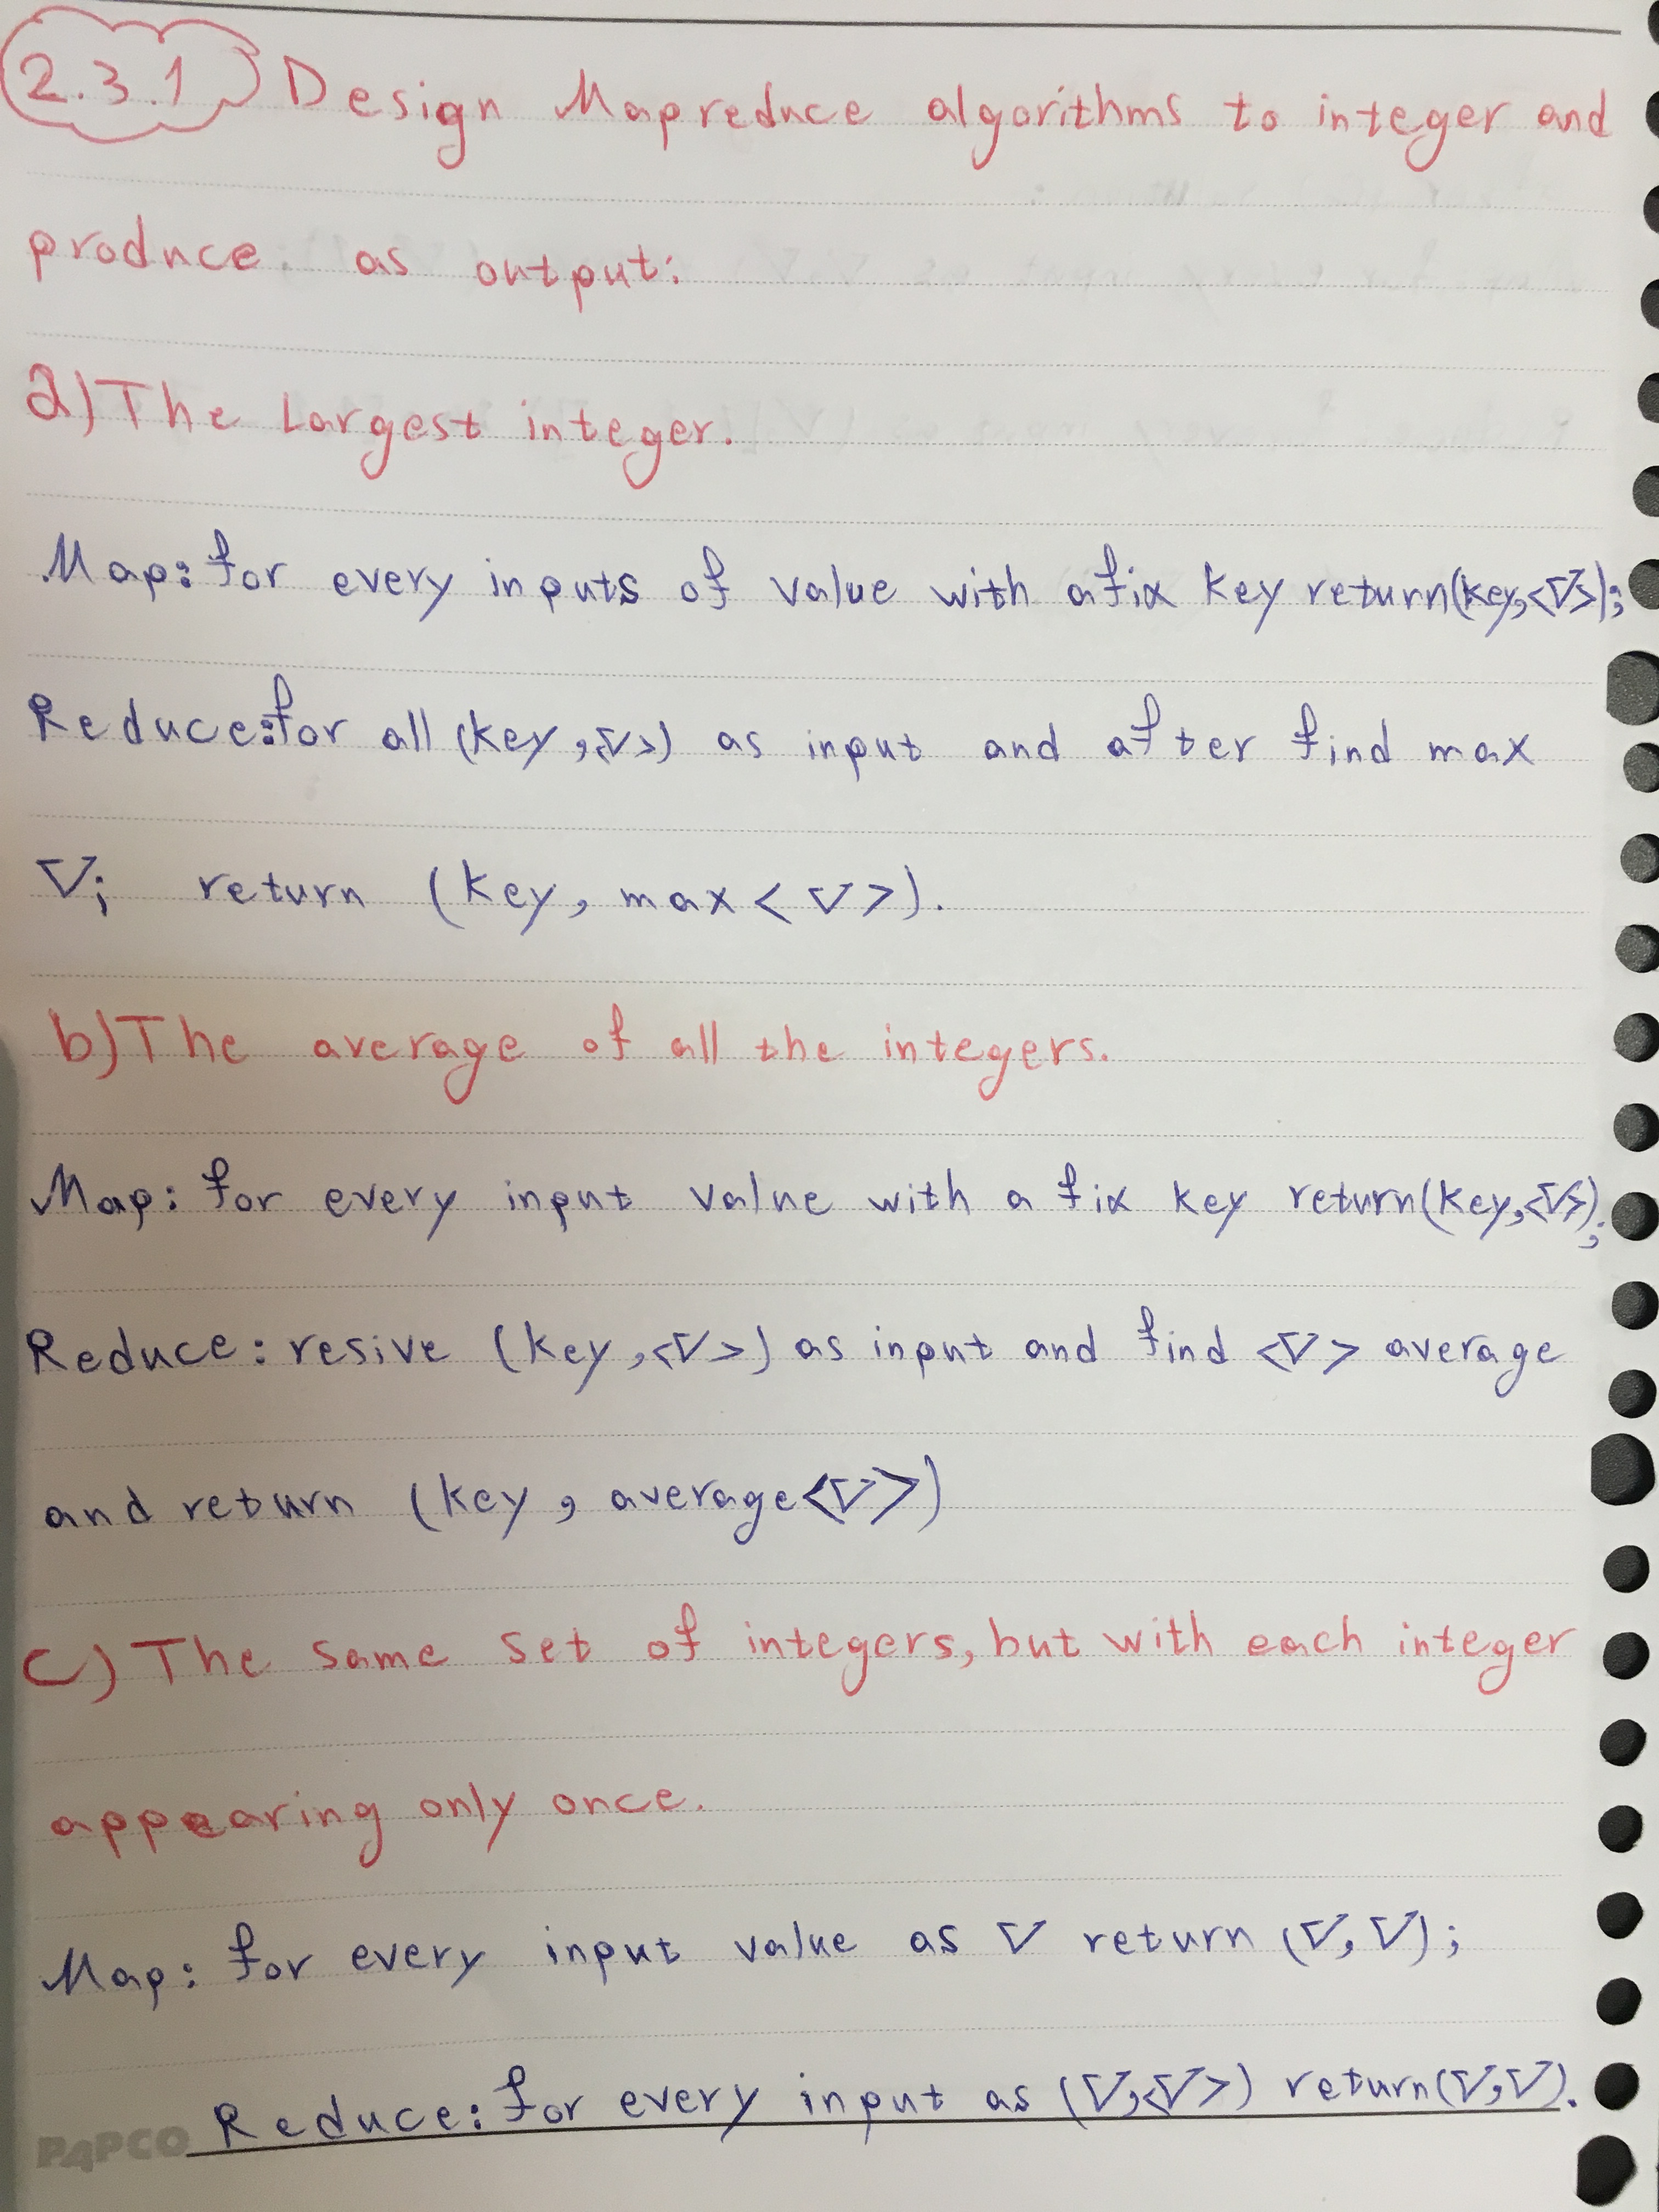 2.3.1 Design Mapreduce algorithms to integer and
produce. as output:
a) The Largest integer.
Map: for every inputs of value with a fix key return(key,<V>);
Reduce: for all (key,<V>) as input and after find max
V; return (key, max<V>).
b) The average of all the integers.
Map: for every input value with a fix key return(key,<V>);
Reduce: resive (key,<V>) as input and find <V> average
and return (key, average<V>)
c) The same set of integers, but with each integer
appearing only once.
Map: for every input value as V return (V,V);
Reduce: for every input as (V,<V>) return(V,V).
PAPCO